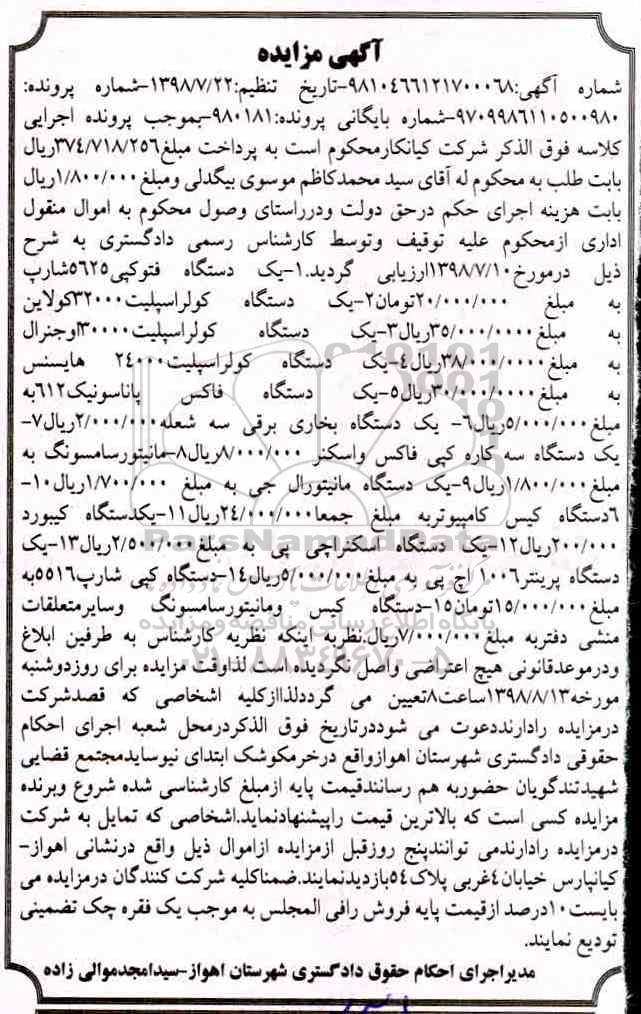 آگهی مزایده
شماره آگهی:۹۸۱۰۴۶۶۱۲۱۷۰۰۰۶۸-تاریخ تنظیم:۱۳۹۸/۷/۲۲-شماره پرونده:
۹۷۰۹۹۸۶۱۱۰۵۰۰۹۸۰-شماره بایگانی پرونده:۹۸۰۱۸۱-بموجب پرونده اجرایی
کلاسه فوق الذکر شرکت کیانکارمحکوم است به پرداخت مبلغ۳۷٤/۷۱۸/۲۵۶ریال
بابت طلب به محکوم له آقای سید محمدکاظم موسوی بیگدلی ومبلغ۱/۸۰۰/۰۰۰ریال
بابت هزینه اجرای حکم درحق دولت ودرراستای وصول محکوم به اموال منقول
اداری ازمحکوم علیه توقیف وتوسط کارشناس رسمی دادگستری به شرح
ذیل درمورخ۱۳۹۸/۷/۱۰ارزیابی گردید.۱-یک دستگاه فتوکپی۵۶۲۵شارپ
به مبلغ ۲۰/۰۰۰/۰۰۰تومان۲-یک دستگاه کولراسپلیت۳۲۰۰۰کولاین
به مبلغ۳۵/۰۰۰/۰۰۰ریال۳-یک دستگاه کولراسپلیت۳۰۰۰۰اوجنرال
به مبلغ۳۸/۰۰۰/۰۰۰ریال٤-یک دستگاه کولراسپلیت۲٤۰۰۰ هایسنس
به مبلغ۳۰/۰۰۰/۰۰۰ریال۵-یک دستگاه فاکس پاناسونیک۶۱۲به
مبلغ۵/۰۰۰/۰۰۰ریال۶- یک دستگاه بخاری برقی سه شعله۲/۰۰۰/۰۰۰ریال۷-
یک دستگاه سه کاره کپی فاکس واسکنر ۸/۰۰۰/۰۰۰ریال۸-مانیتورسامسونگ به
مبلغ۱/۸۰۰/۰۰۰ریال۹-یک دستگاه مانیتورال جی به مبلغ ۱/۷۰۰/۰۰۰ریال۱۰-
۶دستگاه کیس کامپیوتربه مبلغ جمعا۲٤/۰۰۰/۰۰۰ریال۱۱-یکدستگاه کیبورد
۲۰۰/۰۰۰ریال۱۲-یک دستگاه اسکنراچی پی به مبلغ۲/۵۰۰/۰۰۰ریال۱۳-یک
دستگاه پرینتر۱۰۰۶ اچ پی به مبلغ۵/۰۰۰/۰۰۰ریال۱٤-دستگاه کپی شارپ۵۵۱۶به
مبلغ۱۵/۰۰۰/۰۰۰تومان۱۵-دستگاه کیس ومانیتورسامسونگ وسایرمتعلقات
منشی دفتربه مبلغ۷/۰۰۰/۰۰۰ریال.نظربه اینکه نظریه کارشناس به طرفین ابلاغ
ودرموعدقانونی هیچ اعتراضی واصل نگردیده است لذاوقت مزایده برای روزدوشنبه
مورخه۱۳۹۸/۸/۱۳ساعت۸تعیین می گرددلذاازکلیه اشخاصی که قصدشرکت
درمزایده رادارنددعوت می شوددرتاریخ فوق الذکردرمحل شعبه اجرای احکام
حقوقی دادگستری شهرستان اهوازواقع درخرمکوشک ابتدای نیوسایدمجتمع قضایی
شهیدتندگویان حضوربه هم رسانندقیمت پایه ازمبلغ کارشناسی شده شروع وبرنده
مزایده کسی است که بالاترین قیمت راپیشنهادنماید.اشخاصی که تمایل به شرکت
درمزایده رادارندمی توانندپنج روزقبل ازمزایده ازاموال ذیل واقع درنشانی اهواز-
کیانپارس خیابان٤غربی پلاک۵٤بازدیدنمایند.ضمناکلیه شرکت کنندگان درمزایده می
بایست۱۰درصد ازقیمت پایه فروش رافی المجلس به موجب یک فقره چک تضمینی
تودیع نمایند.
مدیراجرای احکام حقوق دادگستری شهرستان اهواز-سیدامجدموالی زاده
ParsNamadData
پایگاه اطلاع رسانی مناقصه و مزایده
۰۲۱-۸۸۳۴۹۶۷۰-۵